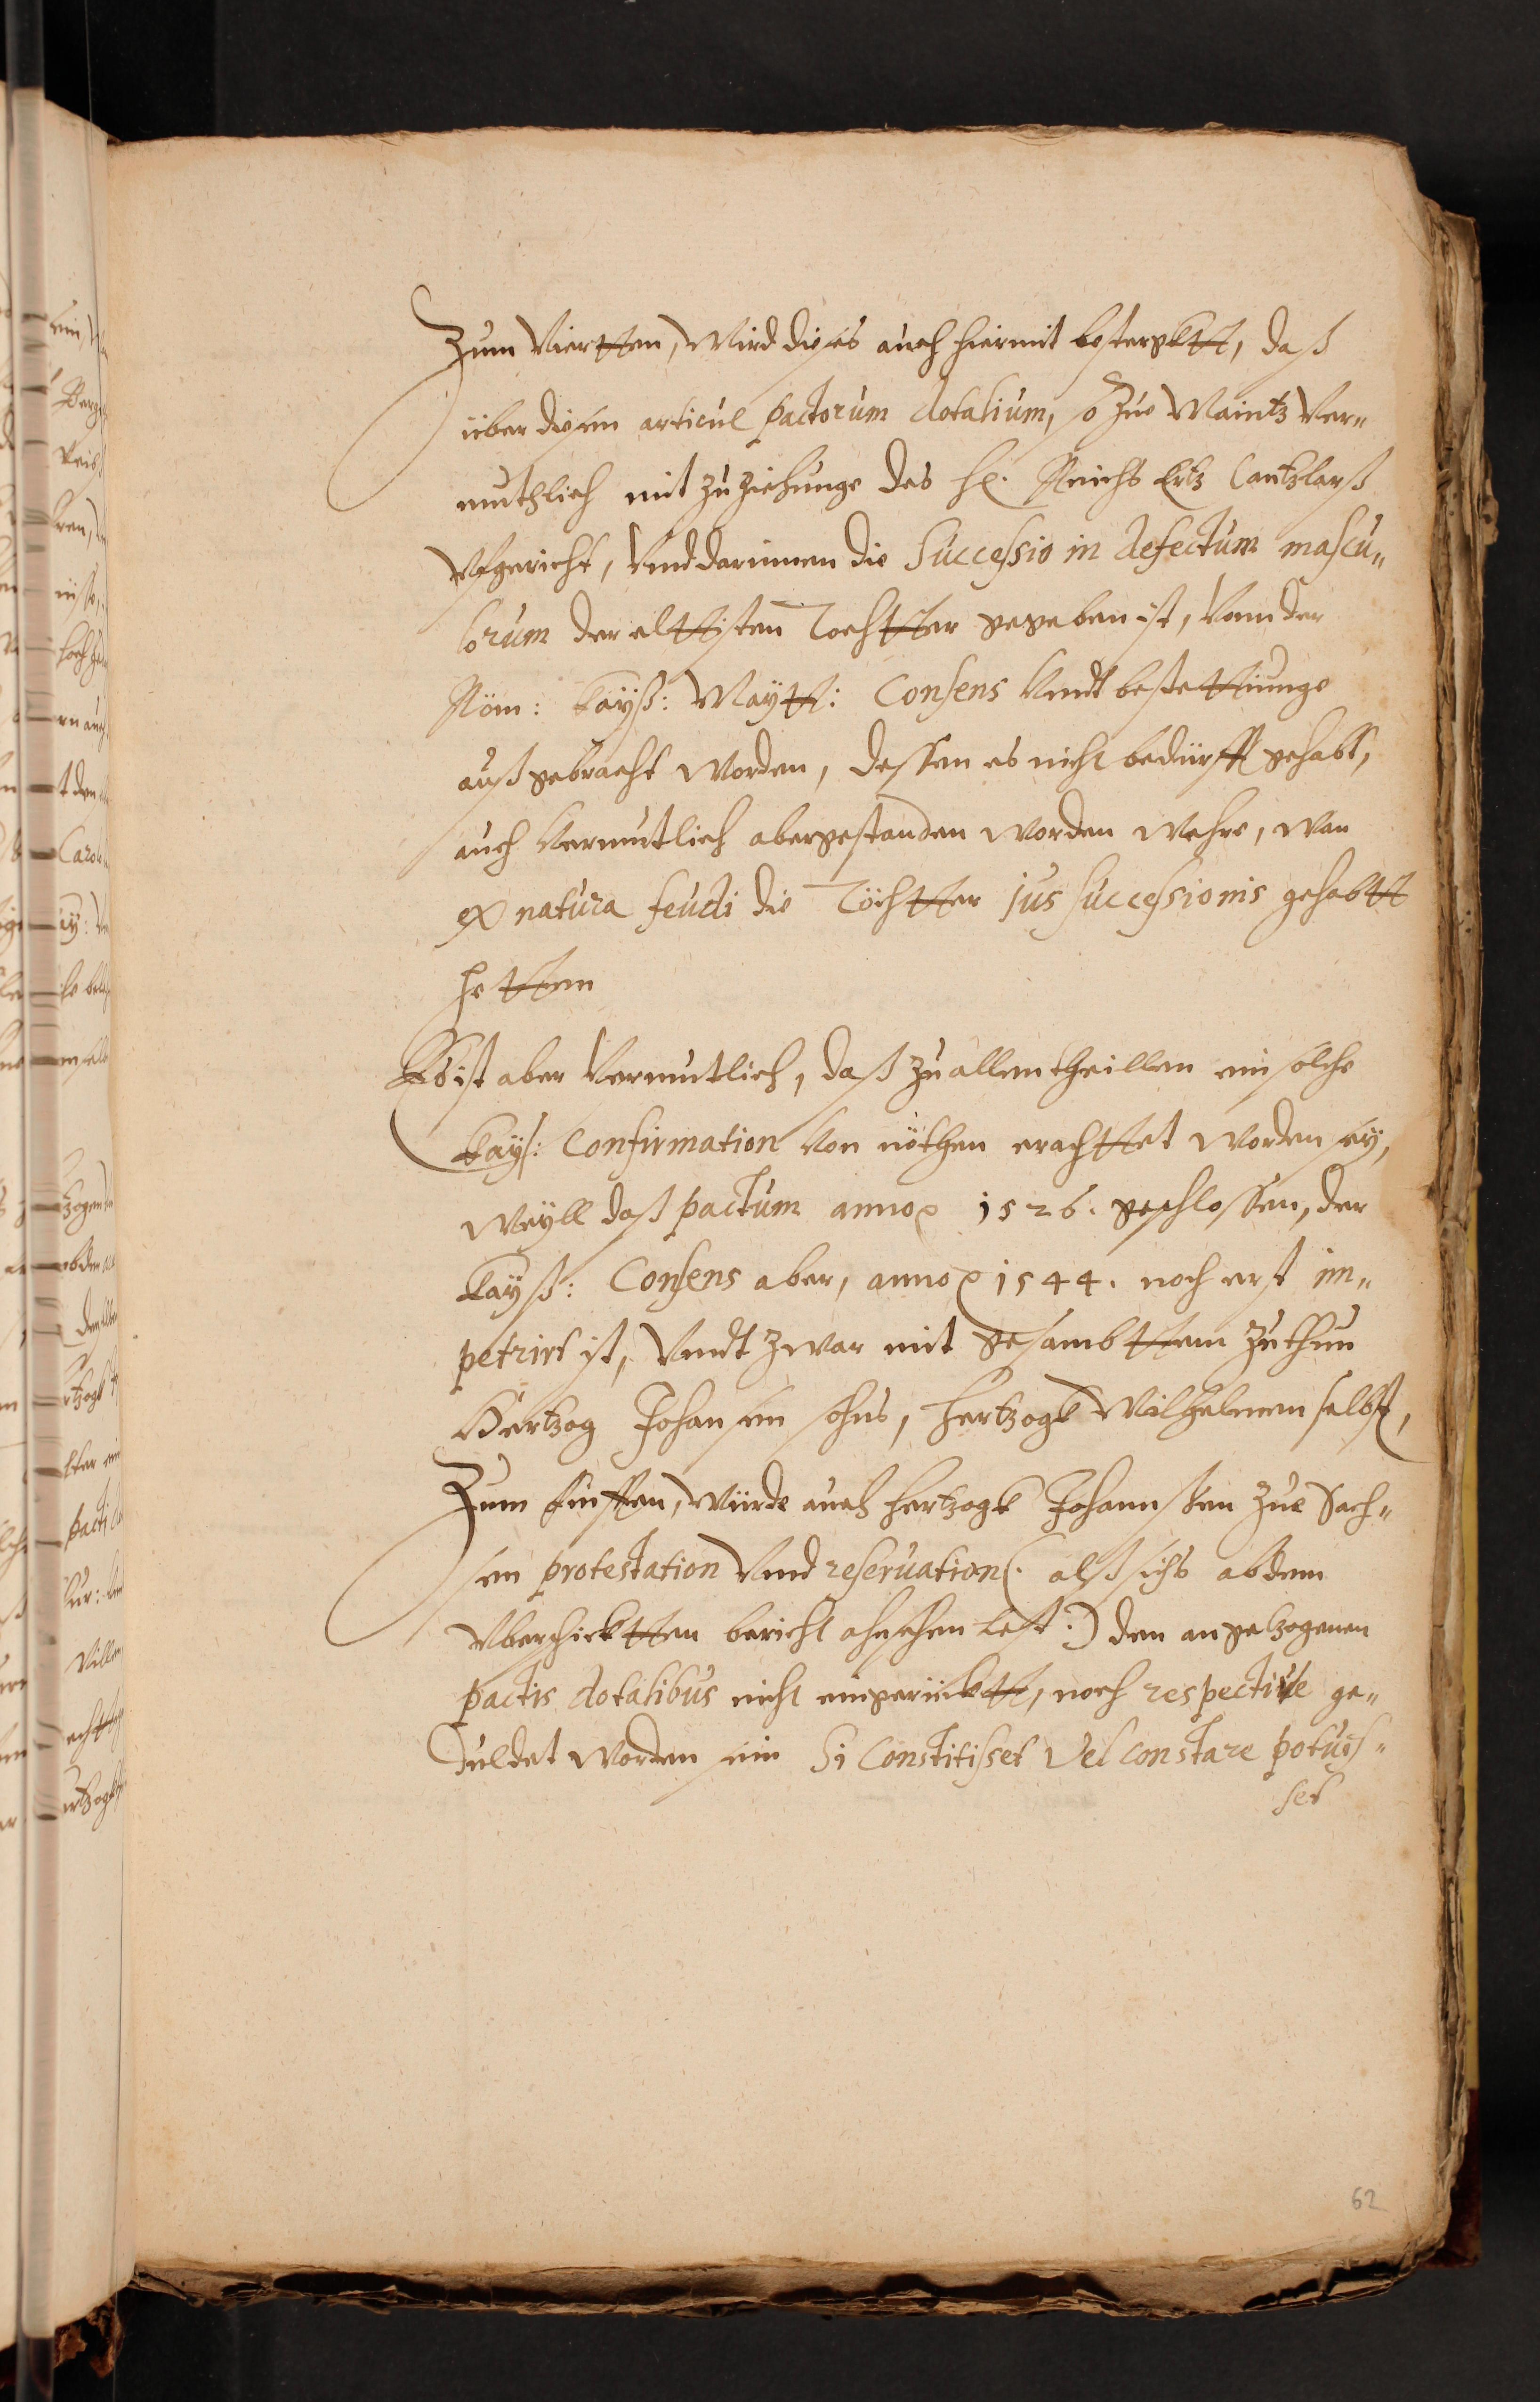 Zum Viertten, Wird dieses auch hiermit bestercktt, daß
über diesem articul pactorum dotalium, so zue Maintz Ver-
muthlich mit zuziehunge des hl. Reichs Ertz Cantzlerß
vfgericht, Vnd darinnen die Successio in defectum mascu-
lorum der elttisten Tochtter gegeben ist, Vonn der
Röm: Kayß: Maytt: Consens Vndt bestettiunge
außgebracht worden, dessen es nicht bedürfft gehabt,
auch Vermutlich abergestanden worden wehre, wan
ex natura feudi die Töchtter jus successionis gehabtt
hetten
Es ist aber Vermutlich, daß zu allen theillen ein solche
Kays: Confirmation Von nöthen erachttet worden sey,
Weyll daß pactum anno 1526. geschlossen, der
Kayß: Consens aber, anno 1544. noch erst im-
petrirt ist, Vndt zwar mit gesambttem zuthun
Hertzog Johansen sohns, Hertzogk Wilhelmen selbst,
Zum Fünfften, Würde auch Hertzogk Johannßen zue Sach-
sen protestation Vnd reseruation (. alß sichs ab dem
Vberschicktten bericht ahnsehen lest .) den angetzogenen
pactis dotalibus nicht eingerücktt, noch respectiue ge-
duldet worden sein Si Constitisset Vel constare potuis-
set
62
Caro
pacti